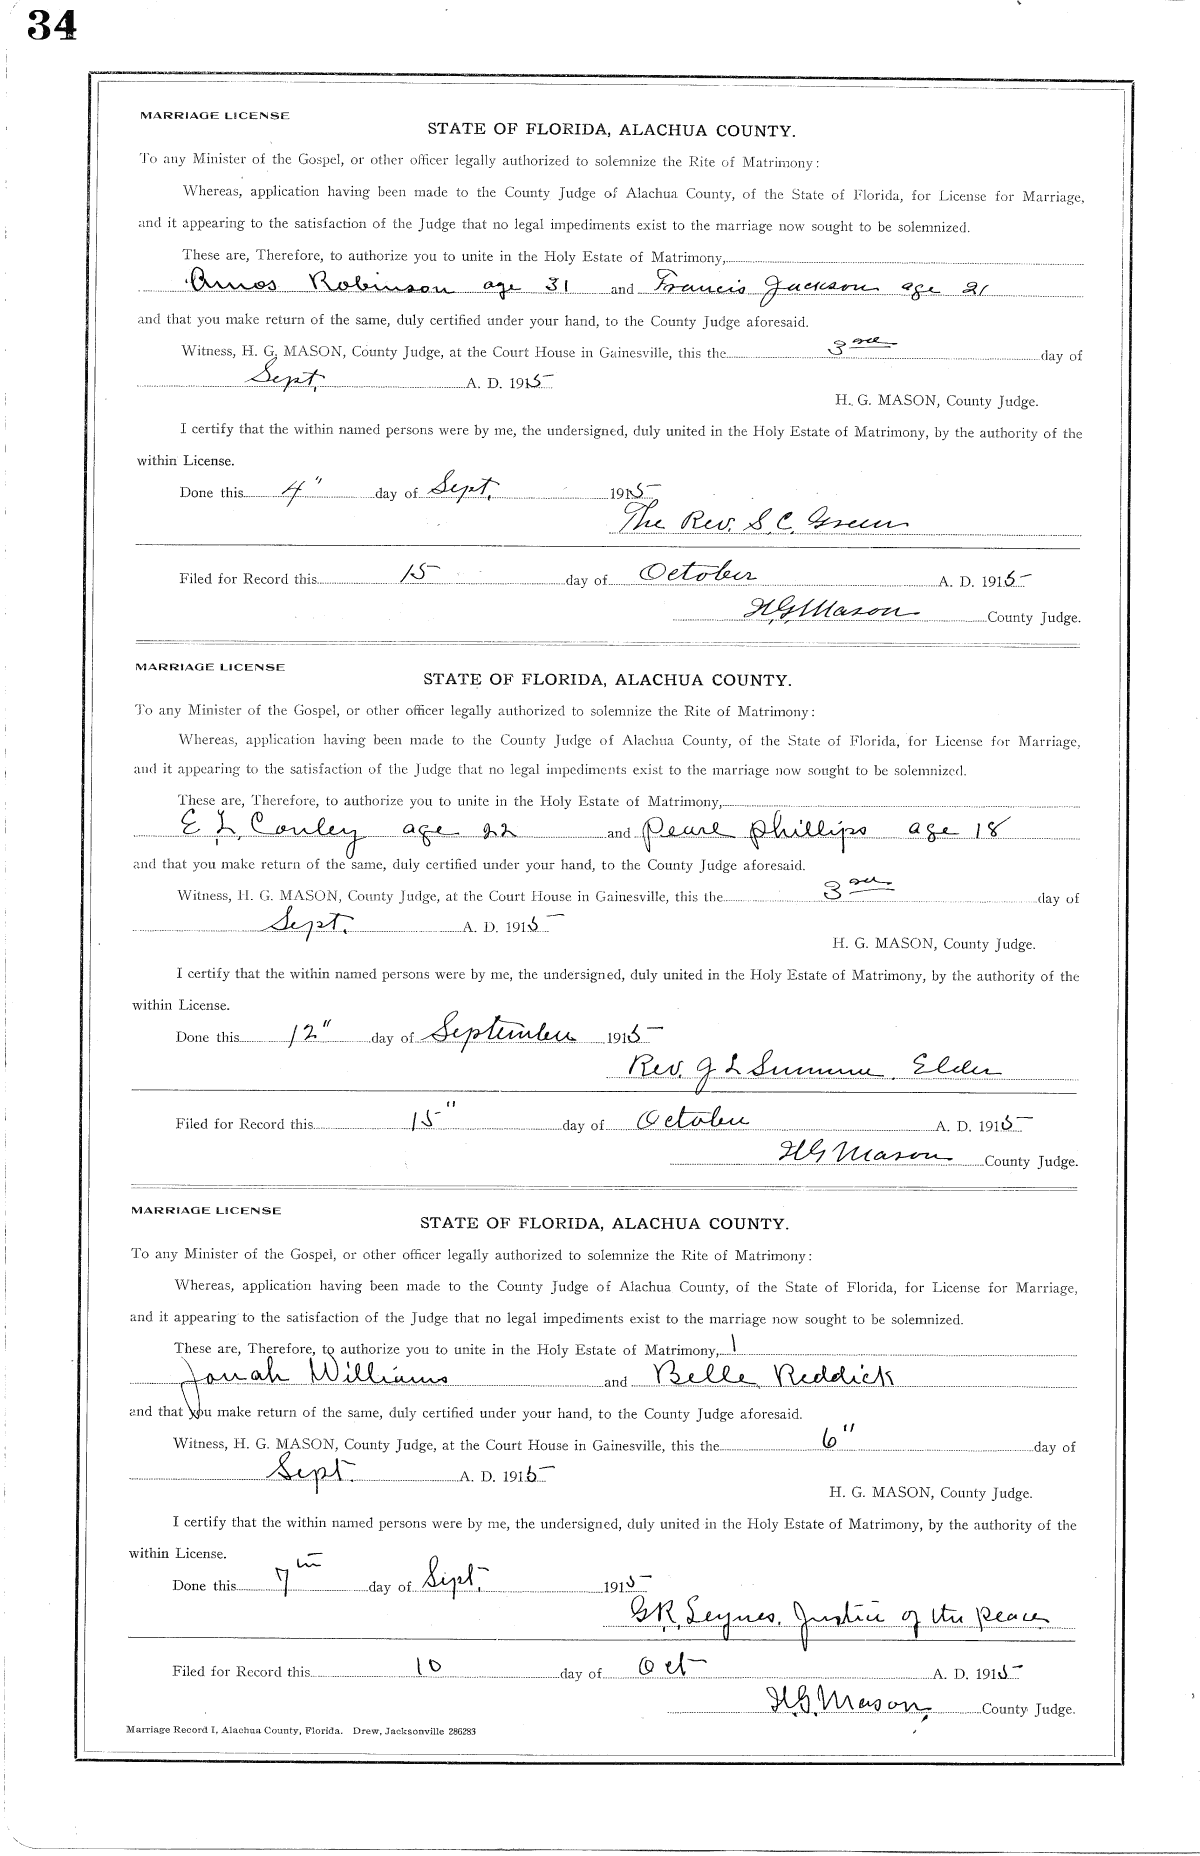 34
MARRIAGE LICENSE
STATE OF FLORIDA, ALACHUA COUNTY.
To any Minister of the Gospel, or other officer legally authorized to solemnize the Rite of Matrimony:
Whereas, application having been made to the County Judge of Alachua County, of the State of Florida, for License for Marriage,
and it appearing to the satisfaction of the Judge that no legal impediments exist to the marriage now sought to be solemnized.
These are, Therefore, to authorize you to unite in the Holy Estate of Matrimony,
Amos Robinson age 31 and Francis Jackson age 21
and that you make return of the same, duly certified under your hand, to the County Judge aforesaid.
Witness, H. G. MASON, County Judge, at the Court House in Gainesville, this the 3rd day of
Sept. A. D. 1915
H. G. MASON, County Judge.
I certify that the within named persons were by me, the undersigned, duly united in the Holy Estate of Matrimony, by the authority of the
within License.
Done this 4" day of Sept. 1915
The Rev. S. C. Green
Filed for Record this 15 day of October A. D. 1915
H.G. Mason County Judge.
MARRIAGE LICENSE
STATE OF FLORIDA, ALACHUA COUNTY.
To any Minister of the Gospel, or other officer legally authorized to solemnize the Rite of Matrimony:
Whereas, application having been made to the County Judge of Alachua County, of the State of Florida, for License for Marriage,
and it appearing to the satisfaction of the Judge that no legal impediments exist to the marriage now sought to be solemnized.
These are, Therefore, to authorize you to unite in the Holy Estate of Matrimony,
E. L. Conley age 22 and Pearl Phillips age 18
and that you make return of the same, duly certified under your hand, to the County Judge aforesaid.
Witness, H. G. MASON, County Judge, at the Court House in Gainesville, this the 3rd day of
Sept. A. D. 1915
H. G. MASON, County Judge.
I certify that the within named persons were by me, the undersigned, duly united in the Holy Estate of Matrimony, by the authority of the
within License.
Done this 12" day of September 1915
Rev. J L Elder
Filed for Record this 15" day of October A. D. 1915
HG Mason County Judge.
MARRIAGE LICENSE
STATE OF FLORIDA, ALACHUA COUNTY.
To any Minister of the Gospel, or other officer legally authorized to solemnize the Rite of Matrimony:
Whereas, application having been made to the County Judge of Alachua County, of the State of Florida, for License for Marriage,
and it appearing to the satisfaction of the Judge that no legal impediments exist to the marriage now sought to be solemnized.
These are, Therefore, to authorize you to unite in the Holy Estate of Matrimony,
Jonah Williams and Belle Reddick
and that you make return of the same, duly certified under your hand, to the County Judge aforesaid.
Witness, H. G. MASON, County Judge, at the Court House in Gainesville, this the 6" day of
Sept. A. D. 1915
H. G. MASON, County Judge.
I certify that the within named persons were by me, the undersigned, duly united in the Holy Estate of Matrimony, by the authority of the
within License.
Done this 7th day of Sept. 1915
G.R. Justice of the Peace
Filed for Record this 10 day of Oct A. D. 1915
H.G. Mason, County Judge.
Marriage Record I, Alachua County, Florida. Drew, Jacksonville 286283